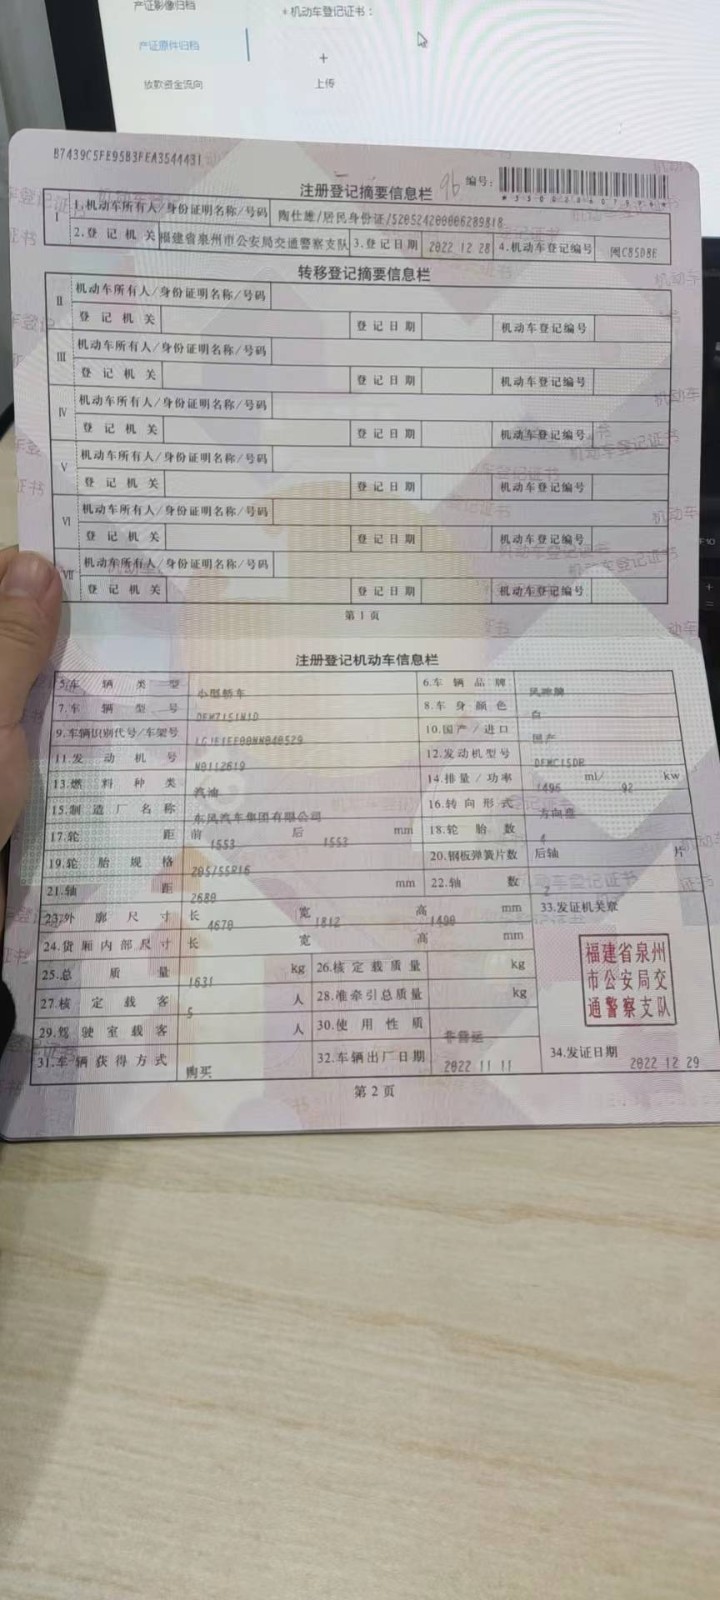 产证影像归档
* 机动车登记证书：
产证原件归档
+
放款资金流向
上传
B7439C5FE95B3FEA3544431
注册登记摘要信息栏
96 编号：
I 1.机动车所有人/身份证明名称/号码 陶仕雄/居民身份证/520524200006289818
2.登记机关 福建省泉州市公安局交通警察支队 3.登记日期 2022 12 28 4.机动车登记编号 闽C85D8E
转移登记摘要信息栏
II 机动车所有人/身份证明名称/号码
登记机关 登记日期 机动车登记编号
III 机动车所有人/身份证明名称/号码
登记机关 登记日期 机动车登记编号
IV 机动车所有人/身份证明名称/号码
登记机关 登记日期 机动车登记编号
V 机动车所有人/身份证明名称/号码
登记机关 登记日期 机动车登记编号
VI 机动车所有人/身份证明名称/号码
登记机关 登记日期 机动车登记编号
VII 机动车所有人/身份证明名称/号码
登记机关 登记日期 机动车登记编号
第 1 页
注册登记机动车信息栏
5.车辆类型 小型轿车 6.车辆品牌 风神牌
7.车辆型号 DFM7151H1D 8.车身颜色 白
9.车辆识别代号/车架号 10.国产/进口 国产
11.发动机号 N0112619 12.发动机型号 DFMC15DR
13.燃料种类 汽油 14.排量/功率 1496 ml/ 92 kw
15.制造厂名称 东风汽车集团有限公司 16.转向形式 方向盘
17.轮距 前 1553 后 1553 mm 18.轮胎数 4
19.轮胎规格 205/55R16 20.钢板弹簧片数 后轴 片
21.轴距 2680 mm 22.轴数 2
23.外廓尺寸 长 4670 宽 1812 高 1490 mm 33.发证机关章
24.货厢内部尺寸 长 宽 高 mm
25.总质量 1631 kg 26.核定载质量 kg
福建省泉州
市公安局交
通警察支队
27.核定载客 5 人 28.准牵引总质量 kg
29.驾驶室载客 人 30.使用性质 非营运
31.车辆获得方式 购买 32.车辆出厂日期 2022 11 11 34.发证日期 2022 12 29
第 2 页